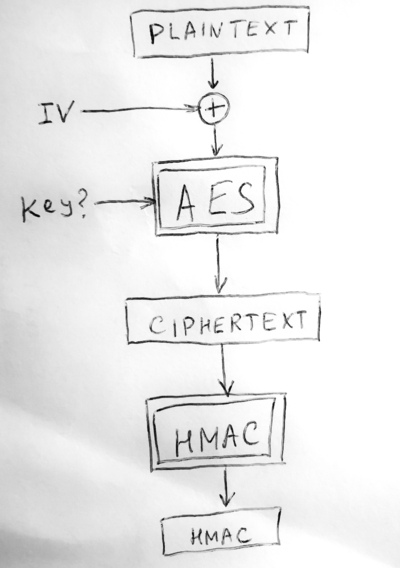 PLAINTEXT
IV
+
Key?
AES
CIPHERTEXT
HMAC
HMAC